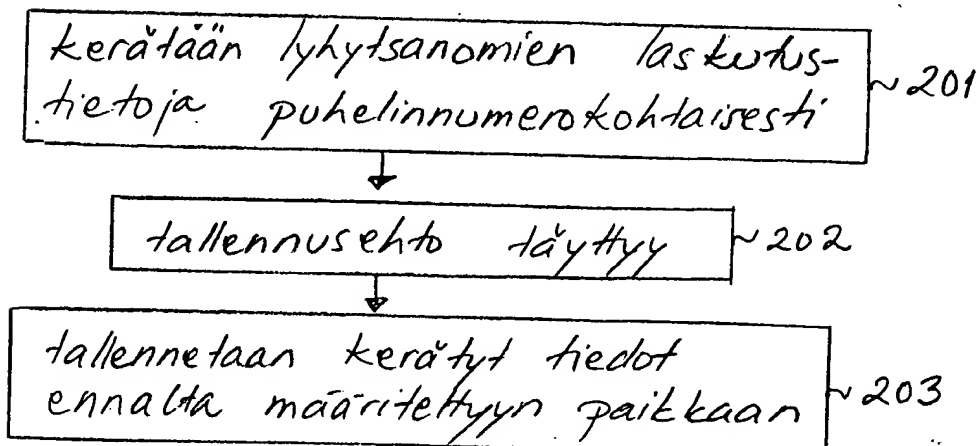 kerätään lyhytsanomien laskutus-
tietoja puhelinnumerokohtaisesti
~ 201
tallennusehto täyttyy
~ 202
tallennetaan kerätyt tiedot
ennalta määriteltyyn paikkaan
~ 203